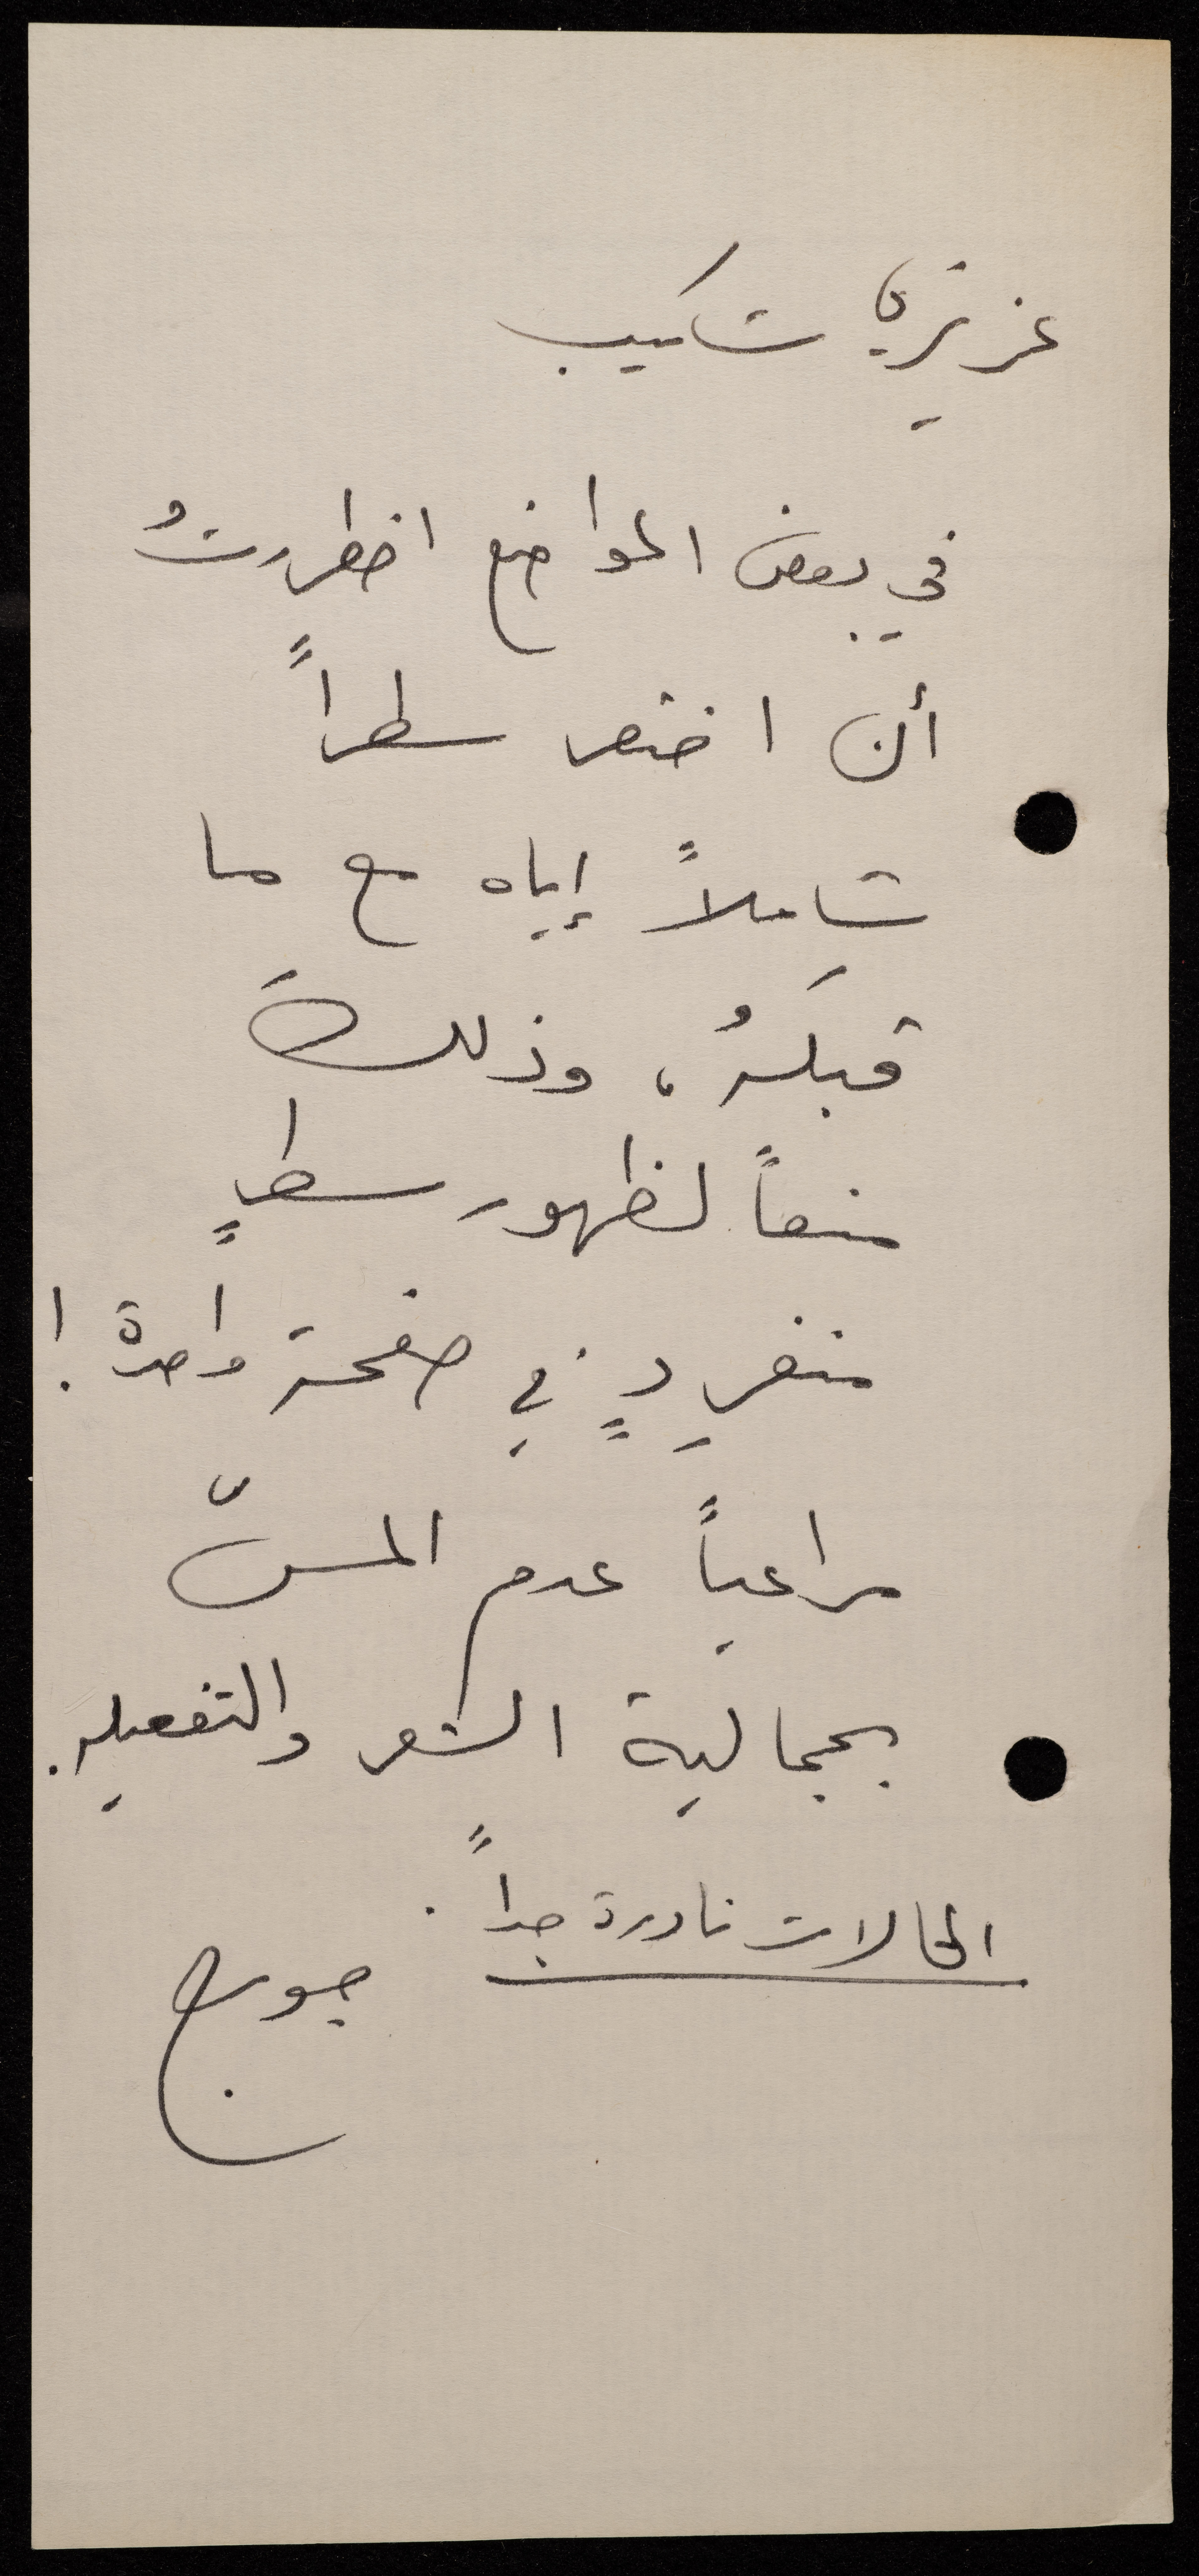 عزيزي شكيب
في بعض المواضع اضطررتُ
أن اختصر سطراً
شاملاً إياه مع ما
قبلهُ، وذلكَ
منعاً لظهور سطرٍ
منفردٍ في صفحة واحدة!
مراعياً عدم المسّ
بجمالية الشعر والتفعيله.
الحالات نادرة جداً.
جورج